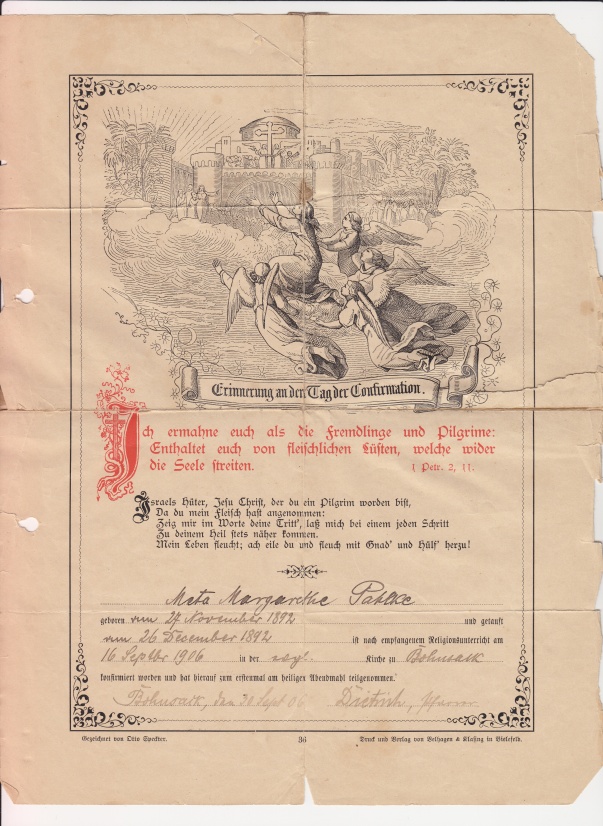 Erinnerung an den Tag der Confirmation.
Ich ermahne euch als die Fremdlinge und Pilgrime:
Enthaltet euch von fleischlichen Lüsten, welche wider
die Seele streiten. 1 Petr. 2, 11.
Israels Hüter, Jesu Christ, der du ein Pilgrim worden bist,
Da du mein Fleisch hast angenommen:
Zeig mir im Worte deine Tritt', laß mich bei einem jeden Schritt
Zu deinem Heil stets näher kommen.
Mein Leben fleucht; ach eile du und fleuch mit Gnad' und Hülf' herzu!
Meta Margarethe
geboren am 27 November 1892 und getauft
am 26 December 1892 ist nach empfangenem Religionsunterricht am
16 Septbr 1906 in der evgl. Kirche zu
konfirmiert worden und hat hierauf zum erstenmal am heiligen Abendmahl teilgenommen.
den 30 Sept 06 Dietrich, Pfarrer
Gezeichnet von Otto Speckter. 36 Druck und Verlag von Velhagen & Klasing in Bielefeld.